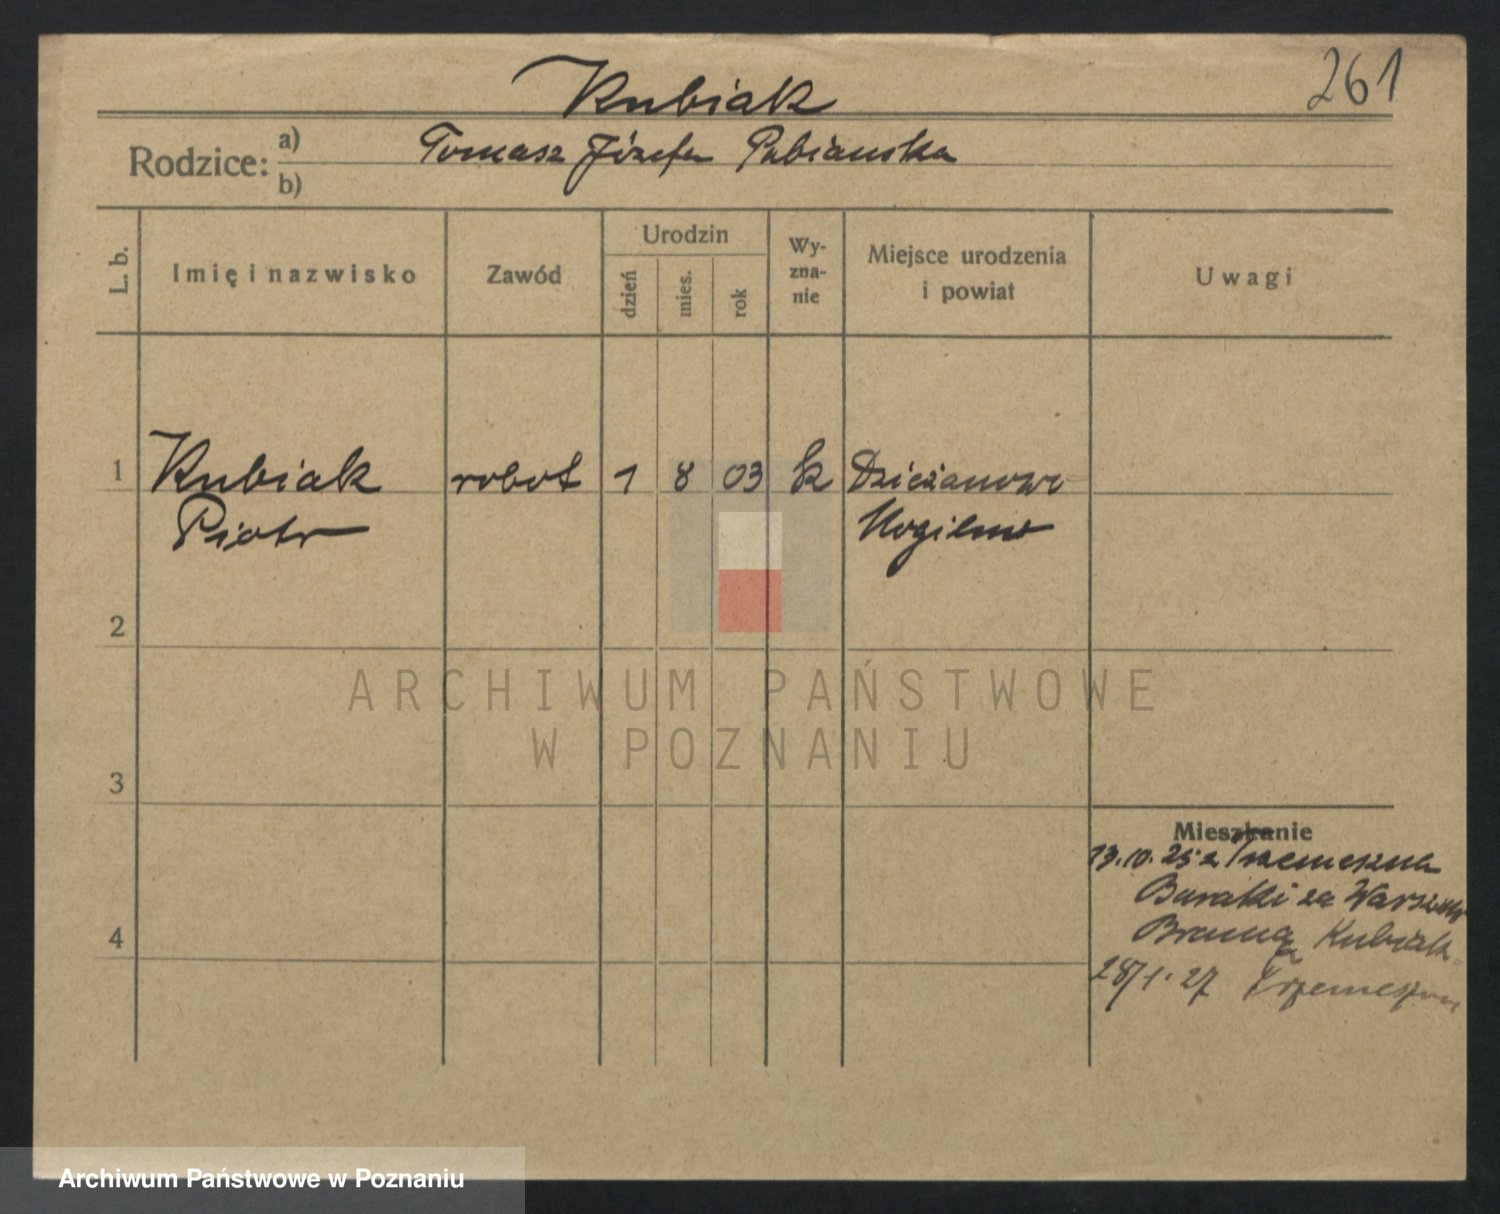 261
Kubiak
Rodzice: a) Tomasz Józefa Pabianska
b)
L. b.
Imię i nazwisko
Zawód
Urodzin
dzień
mies.
rok
Wy-
zna-
nie
Miejsce urodzenia
i powiat
Uwagi
1 Kubiak robot 1 8 03 k Dzierżanowo
Piotr Mogilno
2
ARCHIWUM PAŃSTWOWE
W POZNANIU
3
Mieszkanie
13.10.25 z Trzemeszna
Baraki za Warszaw
Bramą Kubiak
4
28/1.27 Trzemeszno
Archiwum Państwowe w Poznaniu